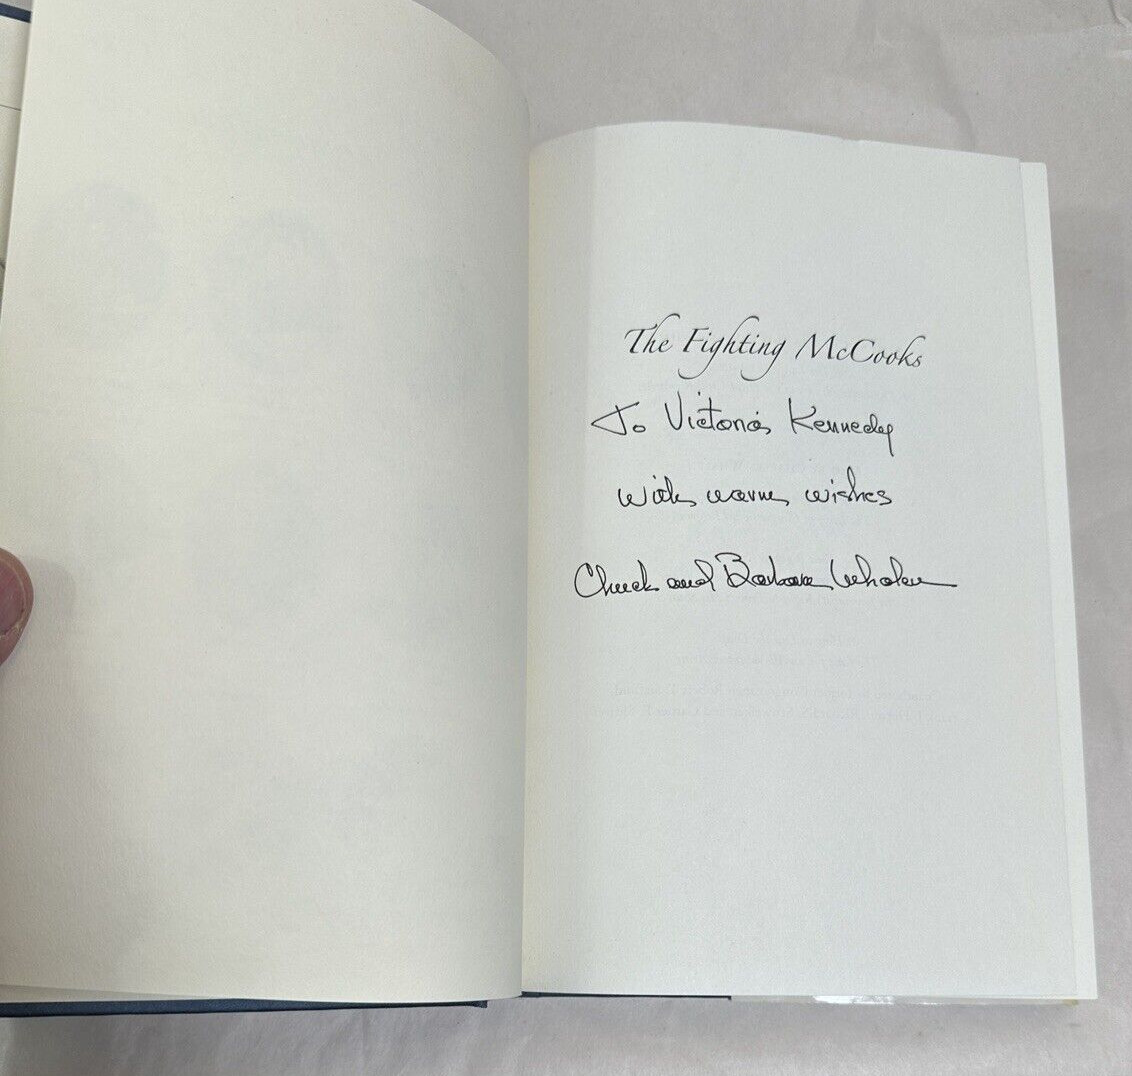 The Fighting McCooks
To Victoria Kennedy
with warm wishes
Chuck and Barbara Whalen